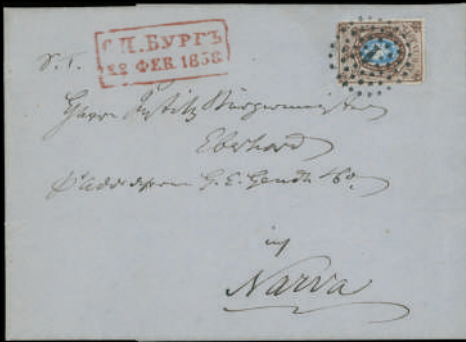 С.П.БУРГЪ
22 ФЕВ. 1858
S. T.
Herrn Justiz Bürgermeister
Eberhard
G. E. Gendt &Co.
in
Narva